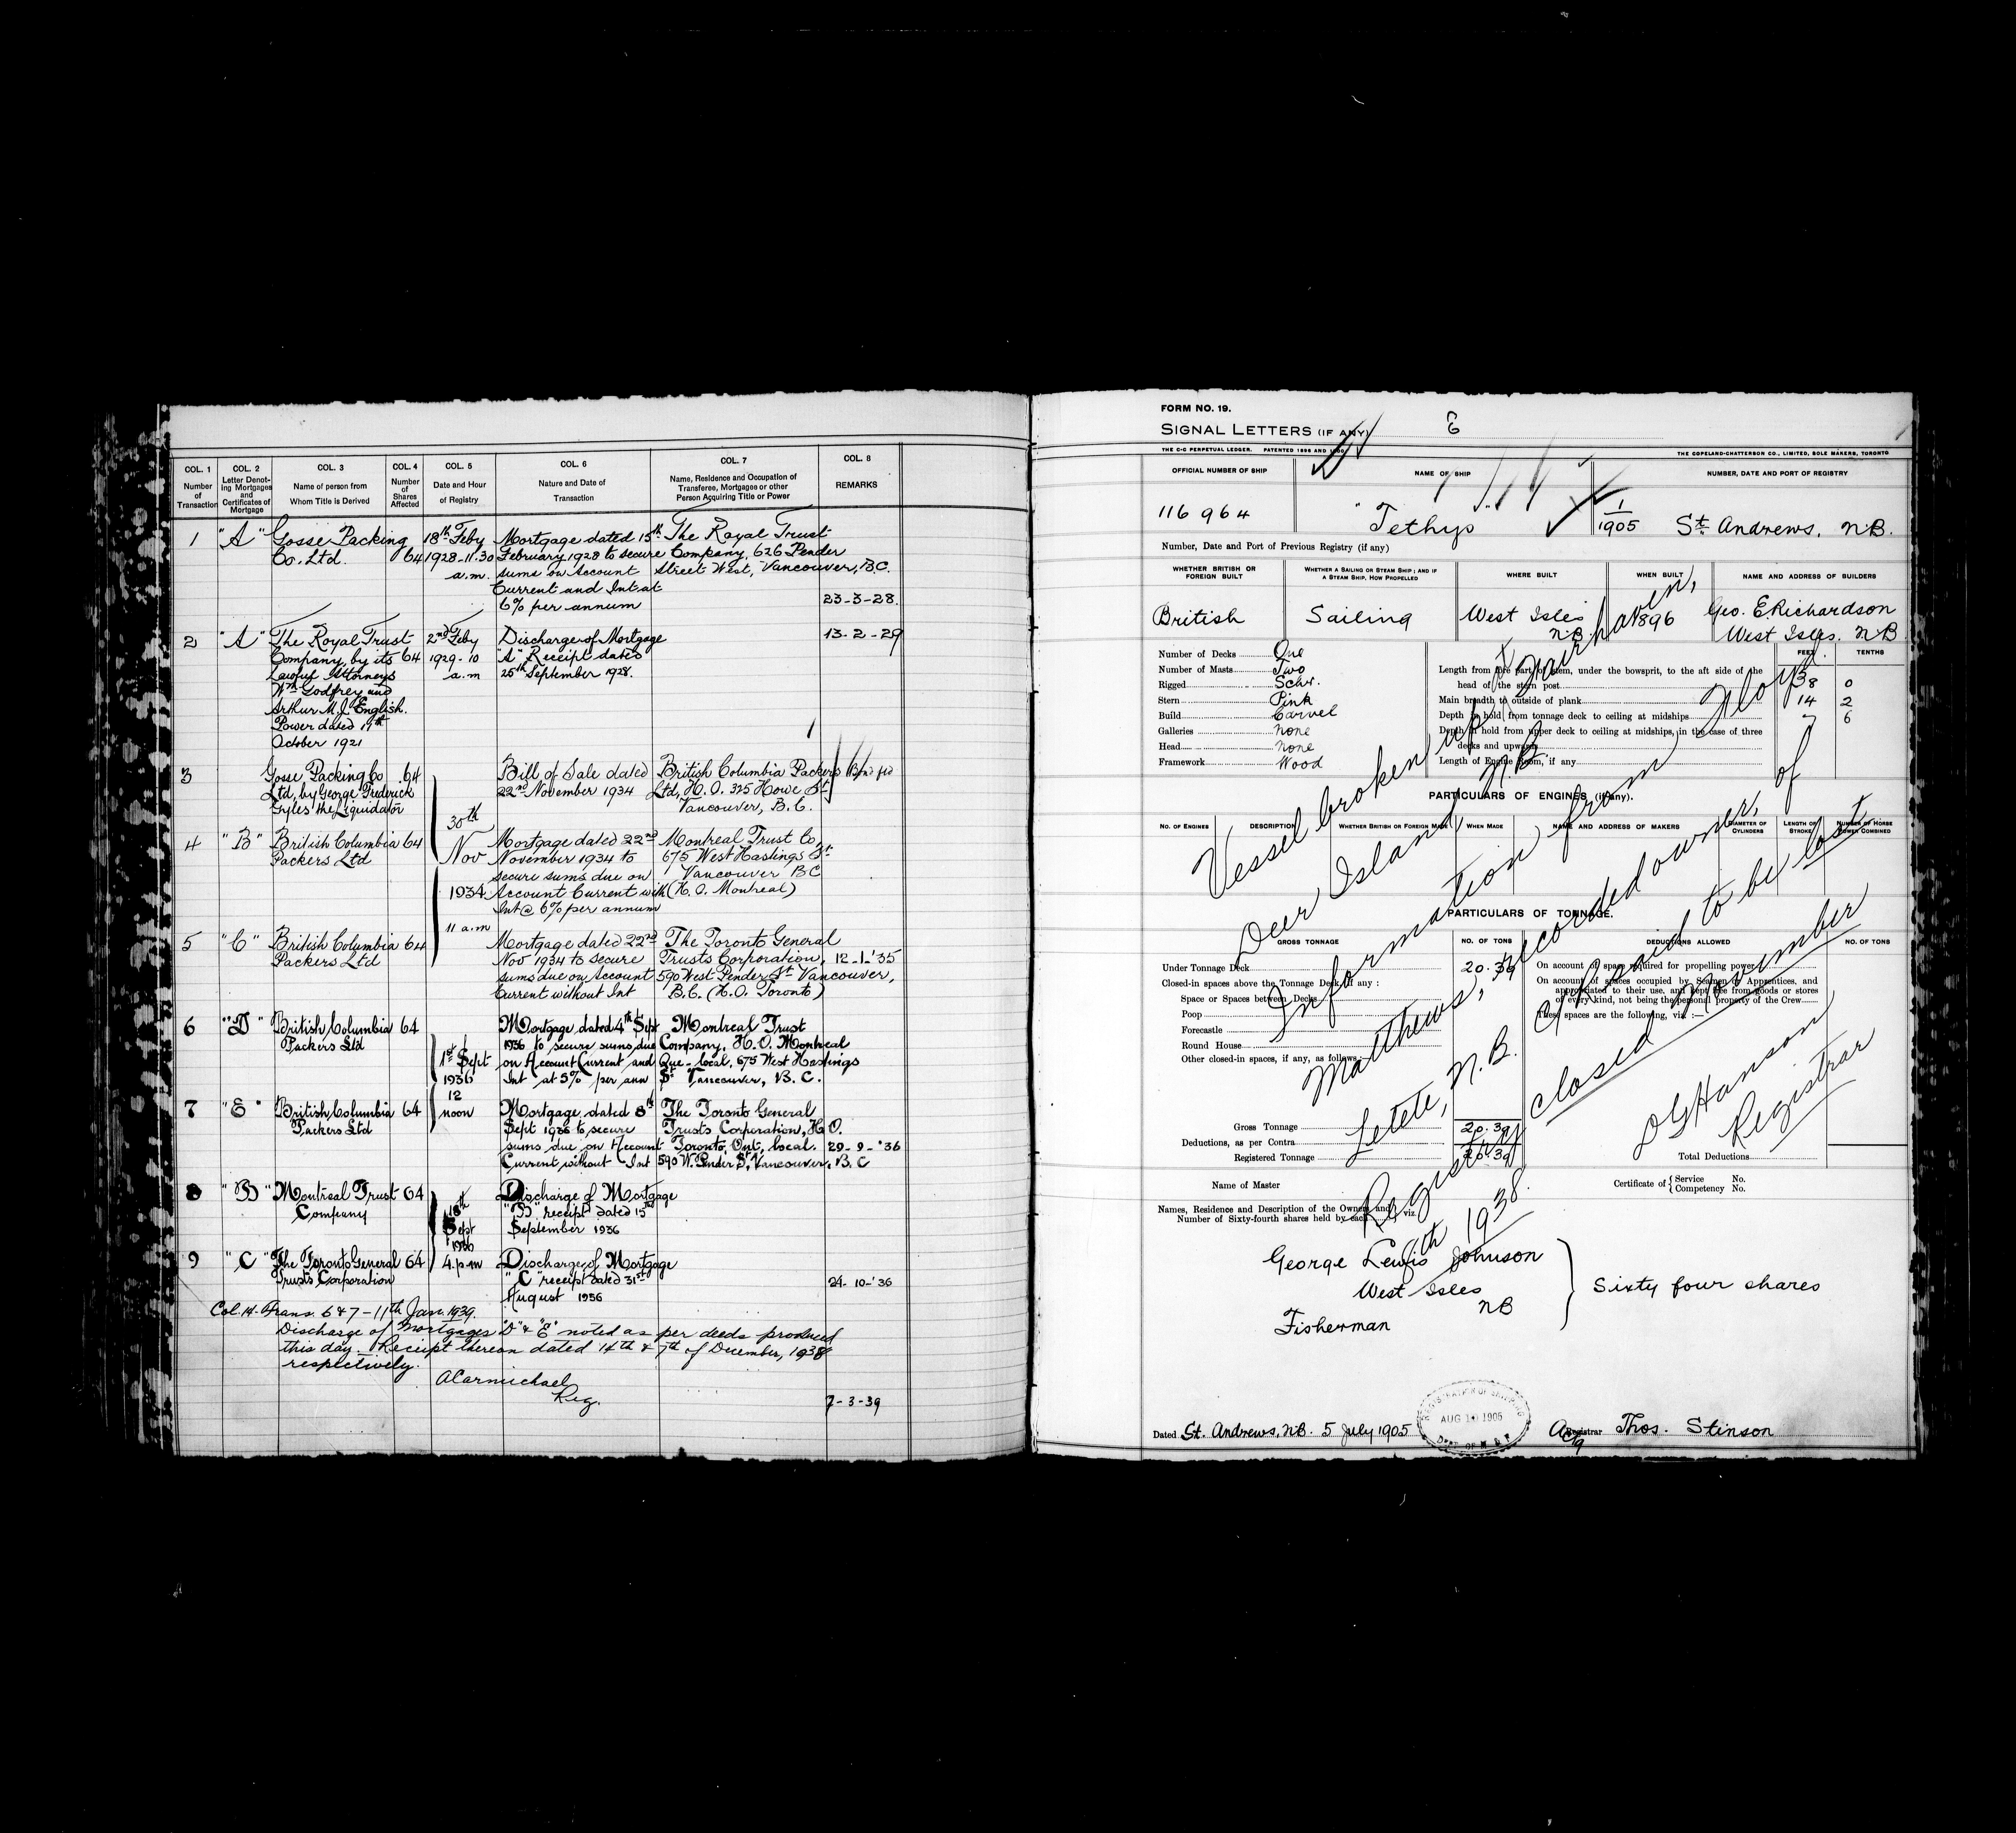 COL. 1
Number
of
Transaction
COL. 2
Letter Denot-
ing Mortgages
and
Certificates of
Mortgage
COL. 3
Name of person from
Whom Title is Derived
COL. 4
Number
of
Shares
Affected
COL. 5
Date and Hour
of Registry
COL. 6
Nature and Date of
Transaction
COL. 7
Name, Residence and Occupation of
Transferee, Mortgagee or other
Person Acquiring Title or Power
COL. 8
REMARKS
1 "A" Gosse Packing 18th Feby Mortgage dated 15th The Royal Trust
Co. Ltd. 64 1928-11.30 February 1928 to secure Company, 626 Pender
a.m. sums on Account Street West, Vancouver, B.C.
Current and Int at
6% per annum 23-3-28.
2 "A" The Royal Trust 2nd Feby Discharge of Mortgage 13-2-29
Company, by its 64 1929-10 "A" Receipt dated
Lawful Attorneys a.m 25th September 1928.
Wm Godfrey and
Arthur M. J. English.
Power dated 17th
October 1921
3 Gosse Packing Co 64 Bill of Sale dated British Columbia Packers
Ltd, by George Frederick 22nd November 1934 Ltd, H.O. 325 Howe St
Gyles the Liquidator Vancouver, B.C.
30th
4 "B" British Columbia 64 Nov Mortgage dated 22nd Montreal Trust Co,
Packers Ltd November 1934 to 675 West Hastings St
secure sums due on Vancouver BC
1934 Account Current with (H.O. Montreal)
Int @ 6% per annum
11 a.m
5 "C" British Columbia 64 Mortgage dated 22nd The Toronto General
Packers Ltd Nov 1934 to secure Trusts Corporation, 12-1-'35
sums due on Account 590 West Pender St Vancouver,
Current without Int B.C. (H.O. Toronto)
6 "D" British Columbia 64 Mortgage dated 4th Sept Montreal Trust
Packers Ltd 1936 to secure sums due Company, H.O. Montreal
1st Sept on Account Current and Que - local, 675 West Hastings
1936 Int at 5% per ann St Vancouver, B.C.
12
7 "E" British Columbia 64 noon Mortgage dated 8th The Toronto General
Packers Ltd Sept 1936 to secure Trusts Corporation, H.O.
sums due on Account Toronto, Ont, local. 29-9-'36
Current without Int 590 W. Pender St, Vancouver, B.C
8 "B" Montreal Trust 64 Discharge of Mortgage
Company 18th "B" receipt dated 15th
Sept September 1936
1936
9 "C" The Toronto General 64 4.p.m Discharge of Mortgage
Trusts Corporation "C" receipt dated 31st 24-10-'36
August 1936
Col. 14. Trans. 6 & 7 - 11th Jan. 1939.
Discharge of Mortgages "D" & "E" noted as per deeds produced
this day. Receipt thereon dated 14th & 7th of December, 1938
respectively.
A Carmichael
Reg.
7-3-39
FORM NO. 19.
SIGNAL LETTERS (IF ANY)
THE C-C PERPETUAL LEDGER. PATENTED 1896 AND
THE COPELAND-CHATTERSON CO., LIMITED, SOLE MAKERS, TORONTO
OFFICIAL NUMBER OF SHIP NAME OF SHIP NUMBER, DATE AND PORT OF REGISTRY
116964 "Tethys" 1/1905 St. Andrews, N.B.
Number, Date and Port of Previous Registry (if any)
WHETHER BRITISH OR
FOREIGN BUILT
WHETHER A SAILING OR STEAM SHIP; AND IF
A STEAM SHIP, HOW PROPELLED
WHERE BUILT
WHEN BUILT
NAME AND ADDRESS OF BUILDERS
British Sailing West Isles 1896 Geo. E. Richardson
N.B. West Isles. N.B
Number of Decks One
Number of Masts Two
Rigged Schr.
Stern Pink
Build Carvel
Galleries none
Head none
Framework Wood
FEET TENTHS
Length from fore part of stem, under the bowsprit, to the aft side of the
head of the stern post 38 0
Main breadth to outside of plank 14 2
Depth in hold from tonnage deck to ceiling at midships 7 6
Depth in hold from upper deck to ceiling at midships, in the case of three
decks and upwards
Length of Engine Room, if any
PARTICULARS OF ENGINES (if any).
No. OF ENGINES DESCRIPTION WHETHER BRITISH OR FOREIGN MADE WHEN MADE NAME AND ADDRESS OF MAKERS DIAMETER OF CYLINDERS LENGTH OF STROKE NUMBER OF HORSE POWER COMBINED
PARTICULARS OF TONNAGE.
GROSS TONNAGE NO. OF TONS DEDUCTIONS ALLOWED NO. OF TONS
Under Tonnage Deck 20.39
Closed-in spaces above the Tonnage Deck, if any :
Space or Spaces between Decks
Poop
Forecastle
Round House
Other closed-in spaces, if any, as follows:
On account of space required for propelling power
On account of spaces occupied by Seamen or Apprentices, and
appropriated to their use, and kept free from goods or stores
of every kind, not being the personal property of the Crew
These spaces are the following, viz :—
Gross Tonnage 20.39
Deductions, as per Contra
Registered Tonnage 20.39
Total Deductions
Name of Master
Certificate of { Service No.
Competency No.
Names, Residence and Description of the Owners, and
Number of Sixty-fourth shares held by each viz.
George Lewis Johnson
West Isles
NB
Fisherman
Sixty four shares
Vessel broken up at Fairhaven,
Deer Island, N.B.
Information from Floyd
Matthews, recorded owner, of
Letete, N.B. & said to be lost
Registry closed November
th 1938.
D G Hanson
Registrar
Dated St. Andrews, N.B. 5 July 1905
AUG 10 1905
Actg Registrar Thos. Stinson